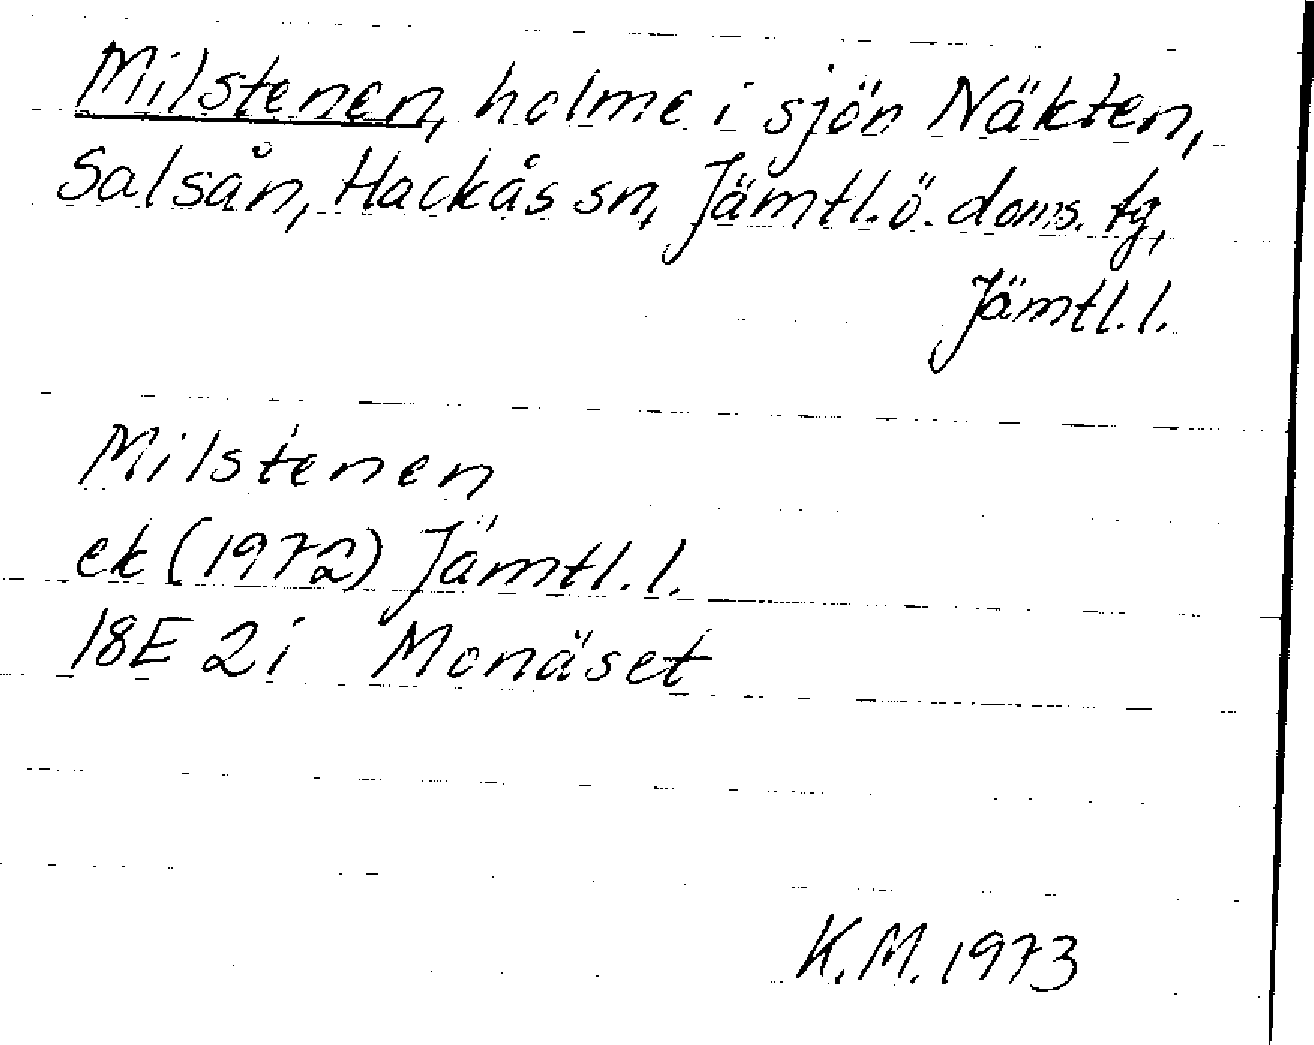 Milstenen, holme i sjön Näkten,
Salsån, Hackås sn, Jämtl. ö. doms. tg,
Jämtl. l.
Milstenen
ek (1972) Jämtl. l.
18E 2i Monäset
K.M. 1973